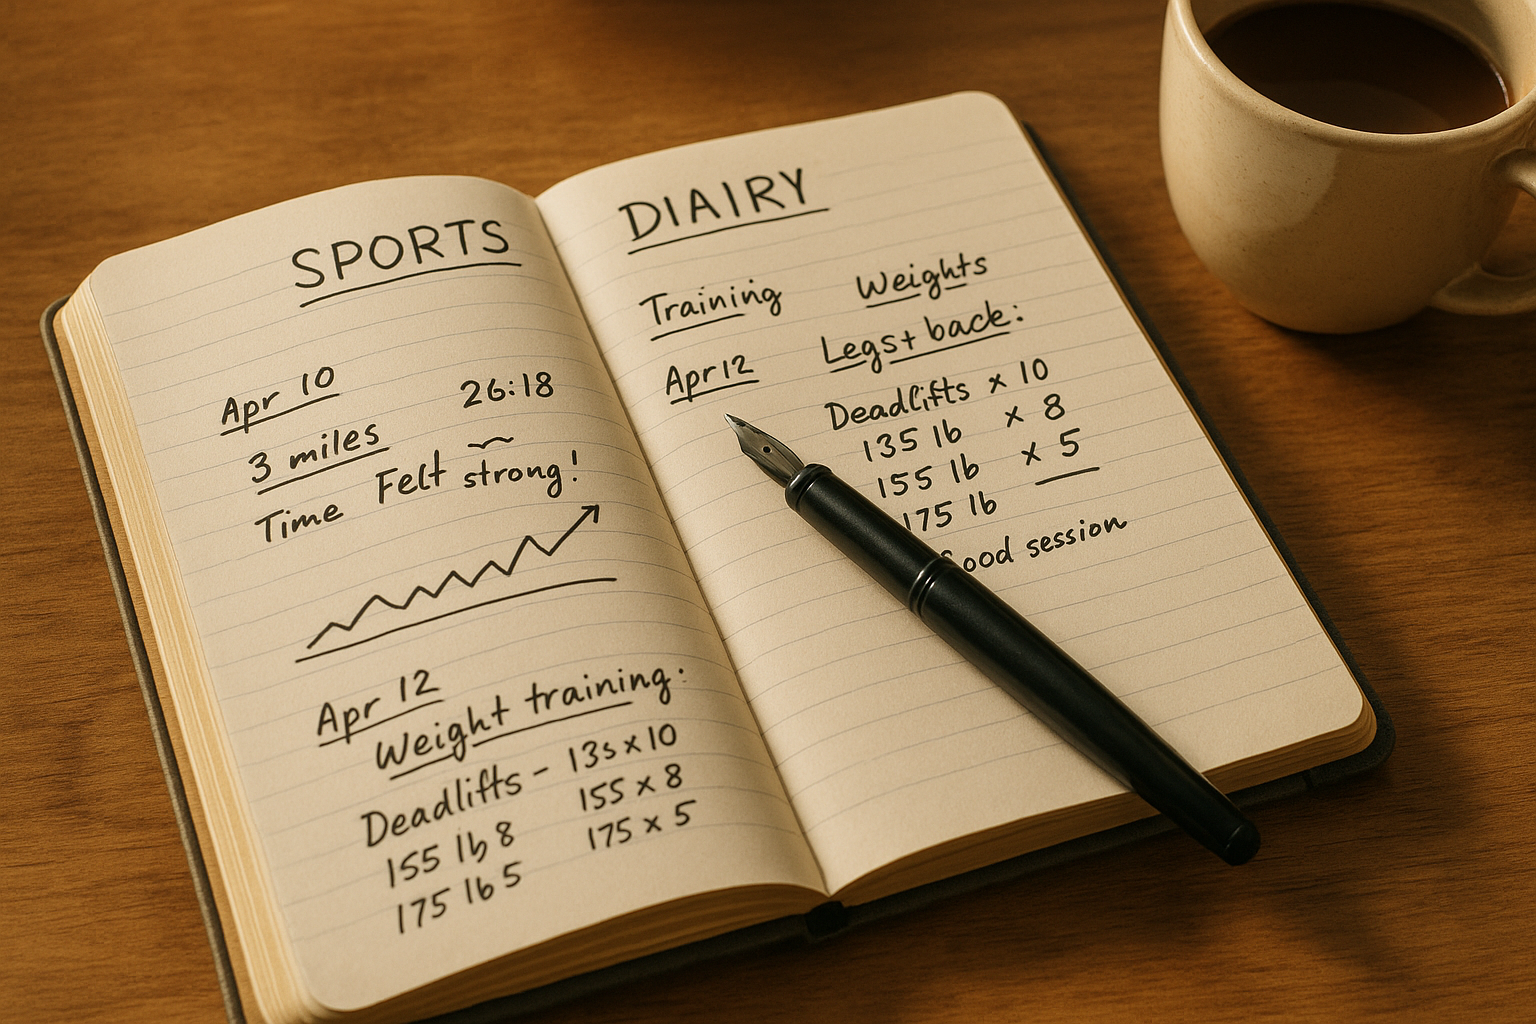 SPORTS
Apr 10
3 miles 26:18
Time Felt strong!
Apr 12
Weight training:
Deadlifts - 135 x 10
155 lb 8 155 x 8
175 lb 5 175 x 5
DIAIRY
Training Weights
Apr 12 Legs + back:
Deadlifts x 10
135 lb x 8
155 lb x 5
175 lb
Good session